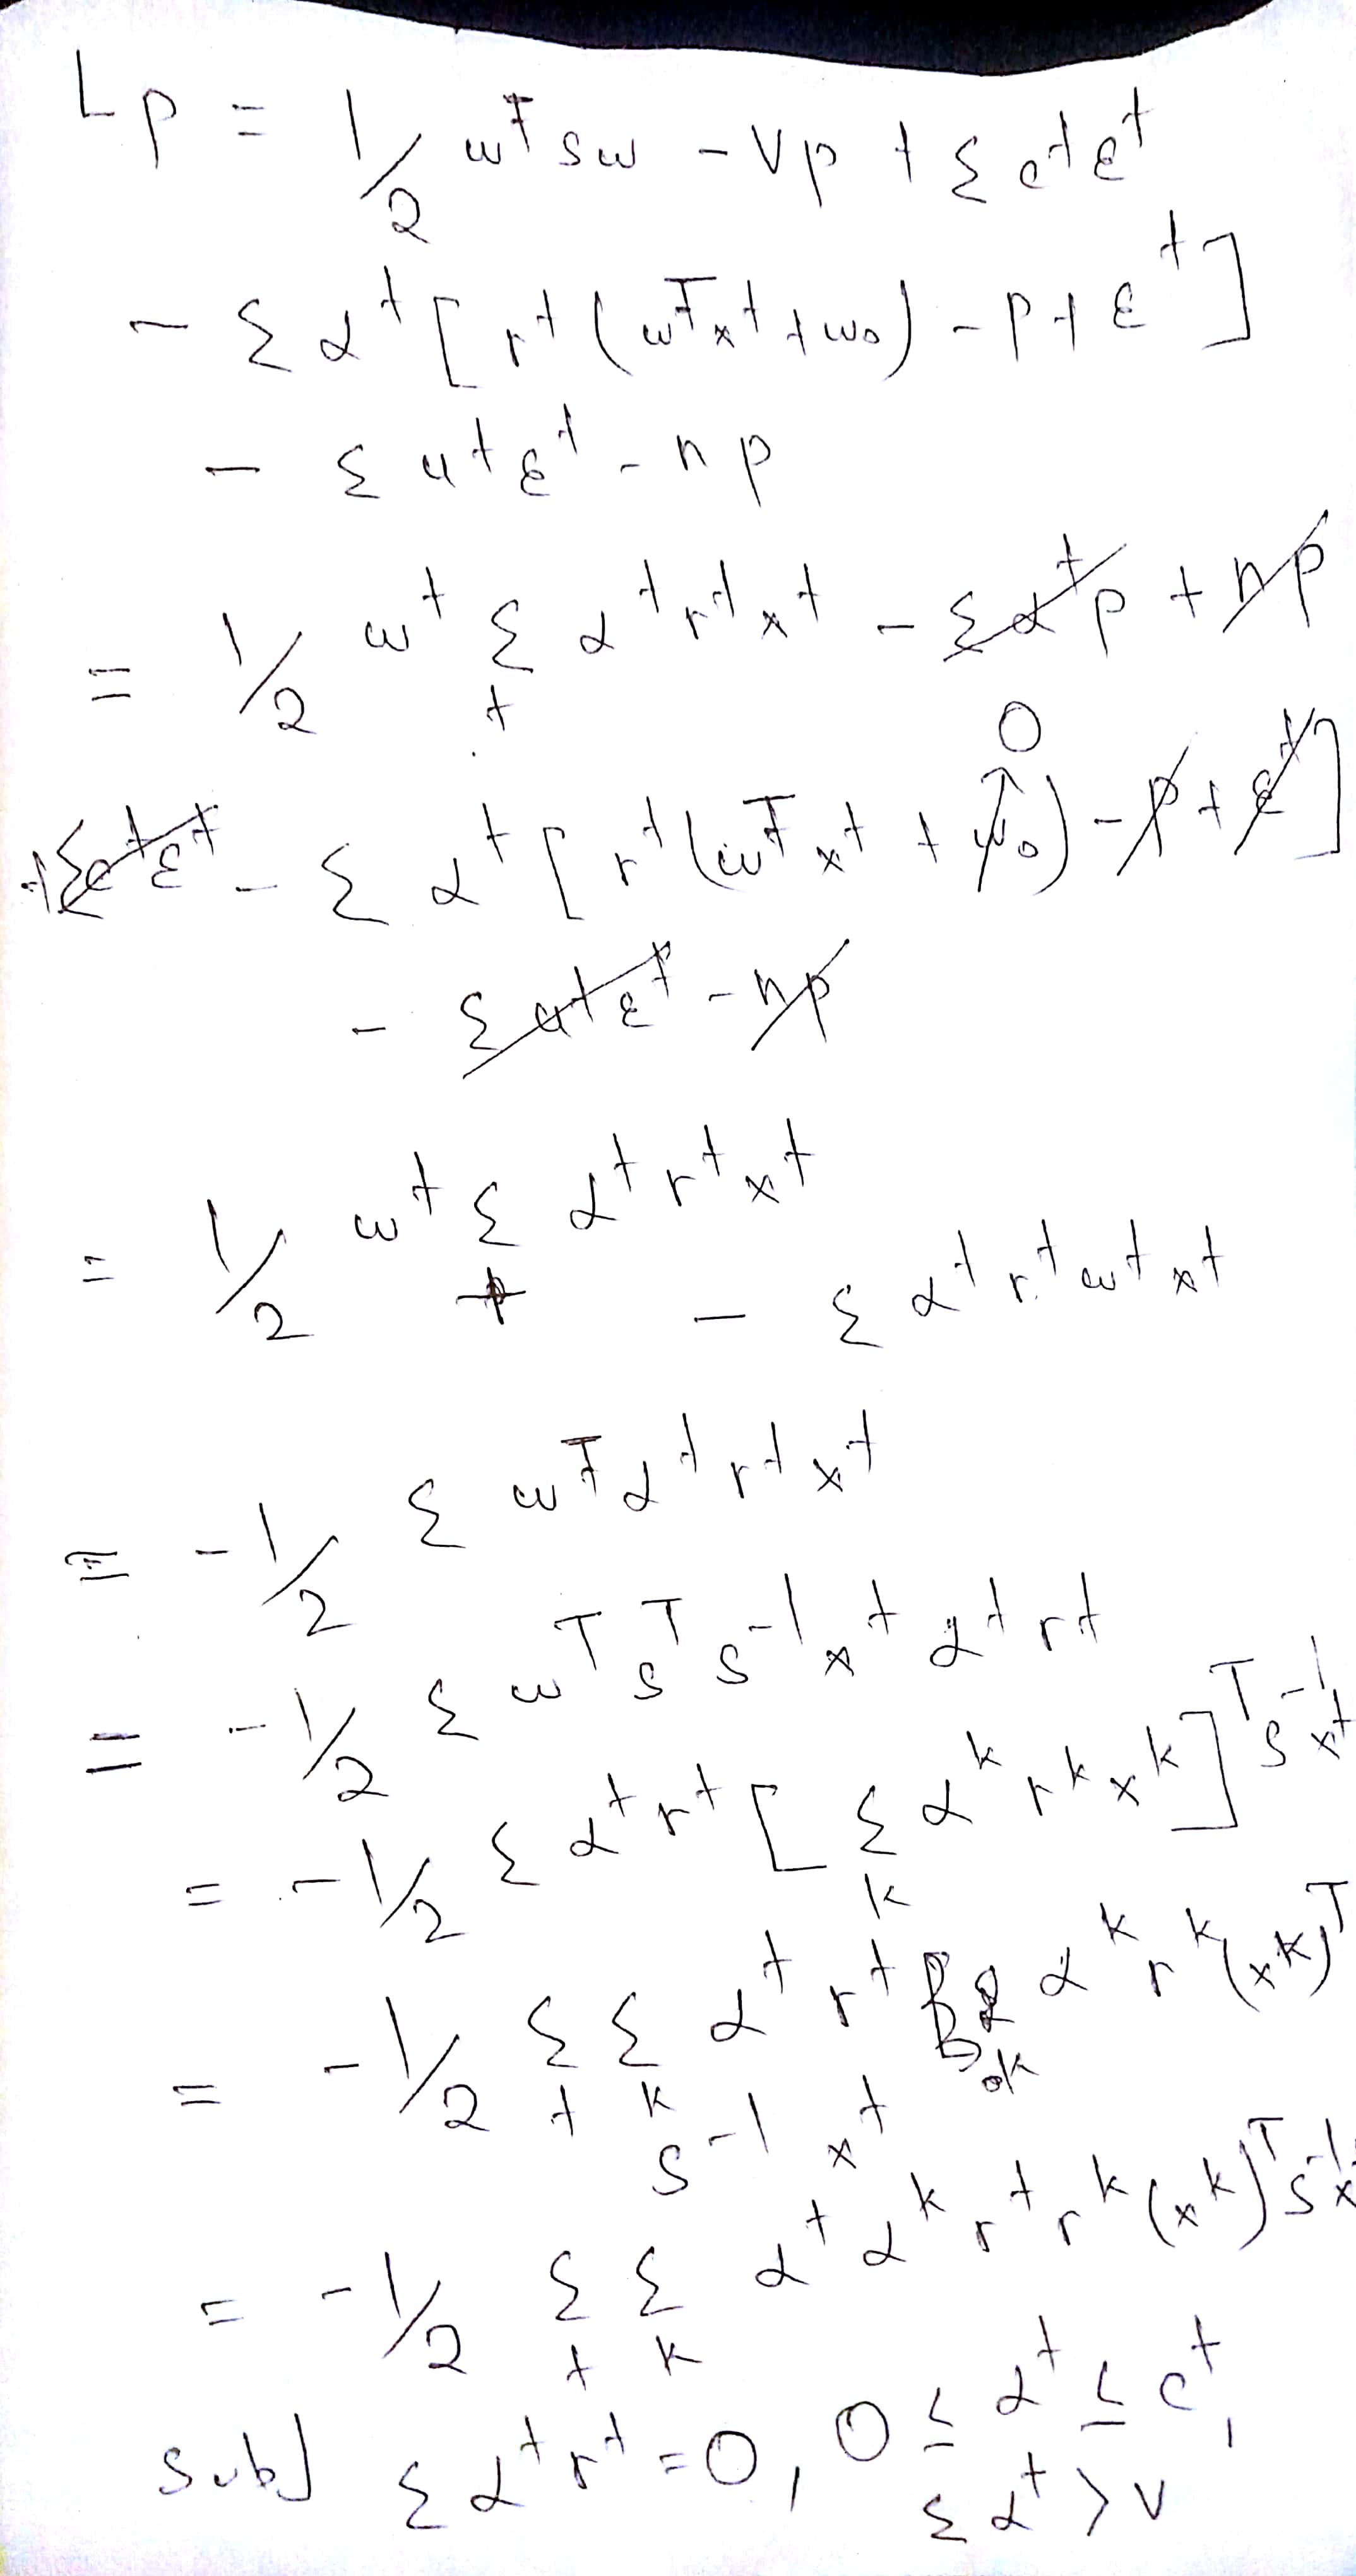 Lp = 1/2 w^T sw - Vp + Σ c^t ε^t
- Σ α^t [ r^t ( w^T x^t + w0 ) - p + ε^t ]
- Σ u^t ε^t - np
= 1/2 w^t Σ_t α^t r^t x^t - Σ α^t p + np
+ Σ c^t ε^t - Σ α^t [ r^t ( w^T x^t + w0 ) - p + ε^t ]
0
- Σ u^t ε^t - np
= 1/2 w^t Σ_t α^t r^t x^t
- Σ α^t r^t w^t x^t
= -1/2 Σ w^T α^t r^t x^t
= -1/2 Σ w^T s^T s^-1 x^t α^t r^t
= -1/2 Σ α^t r^t [ Σ_k α^k r^k x^k ]^T s^-1 x^t
= -1/2 Σ_t Σ_k α^t r^t α^k r^k (x^k)^T
s^-1 x^t
= -1/2 Σ_t Σ_k α^t α^k r^t r^k (x^k)^T s^-1 x
subj Σ α^t r^t = 0, 0 ≤ α^t ≤ c^t,
Σ α^t > V